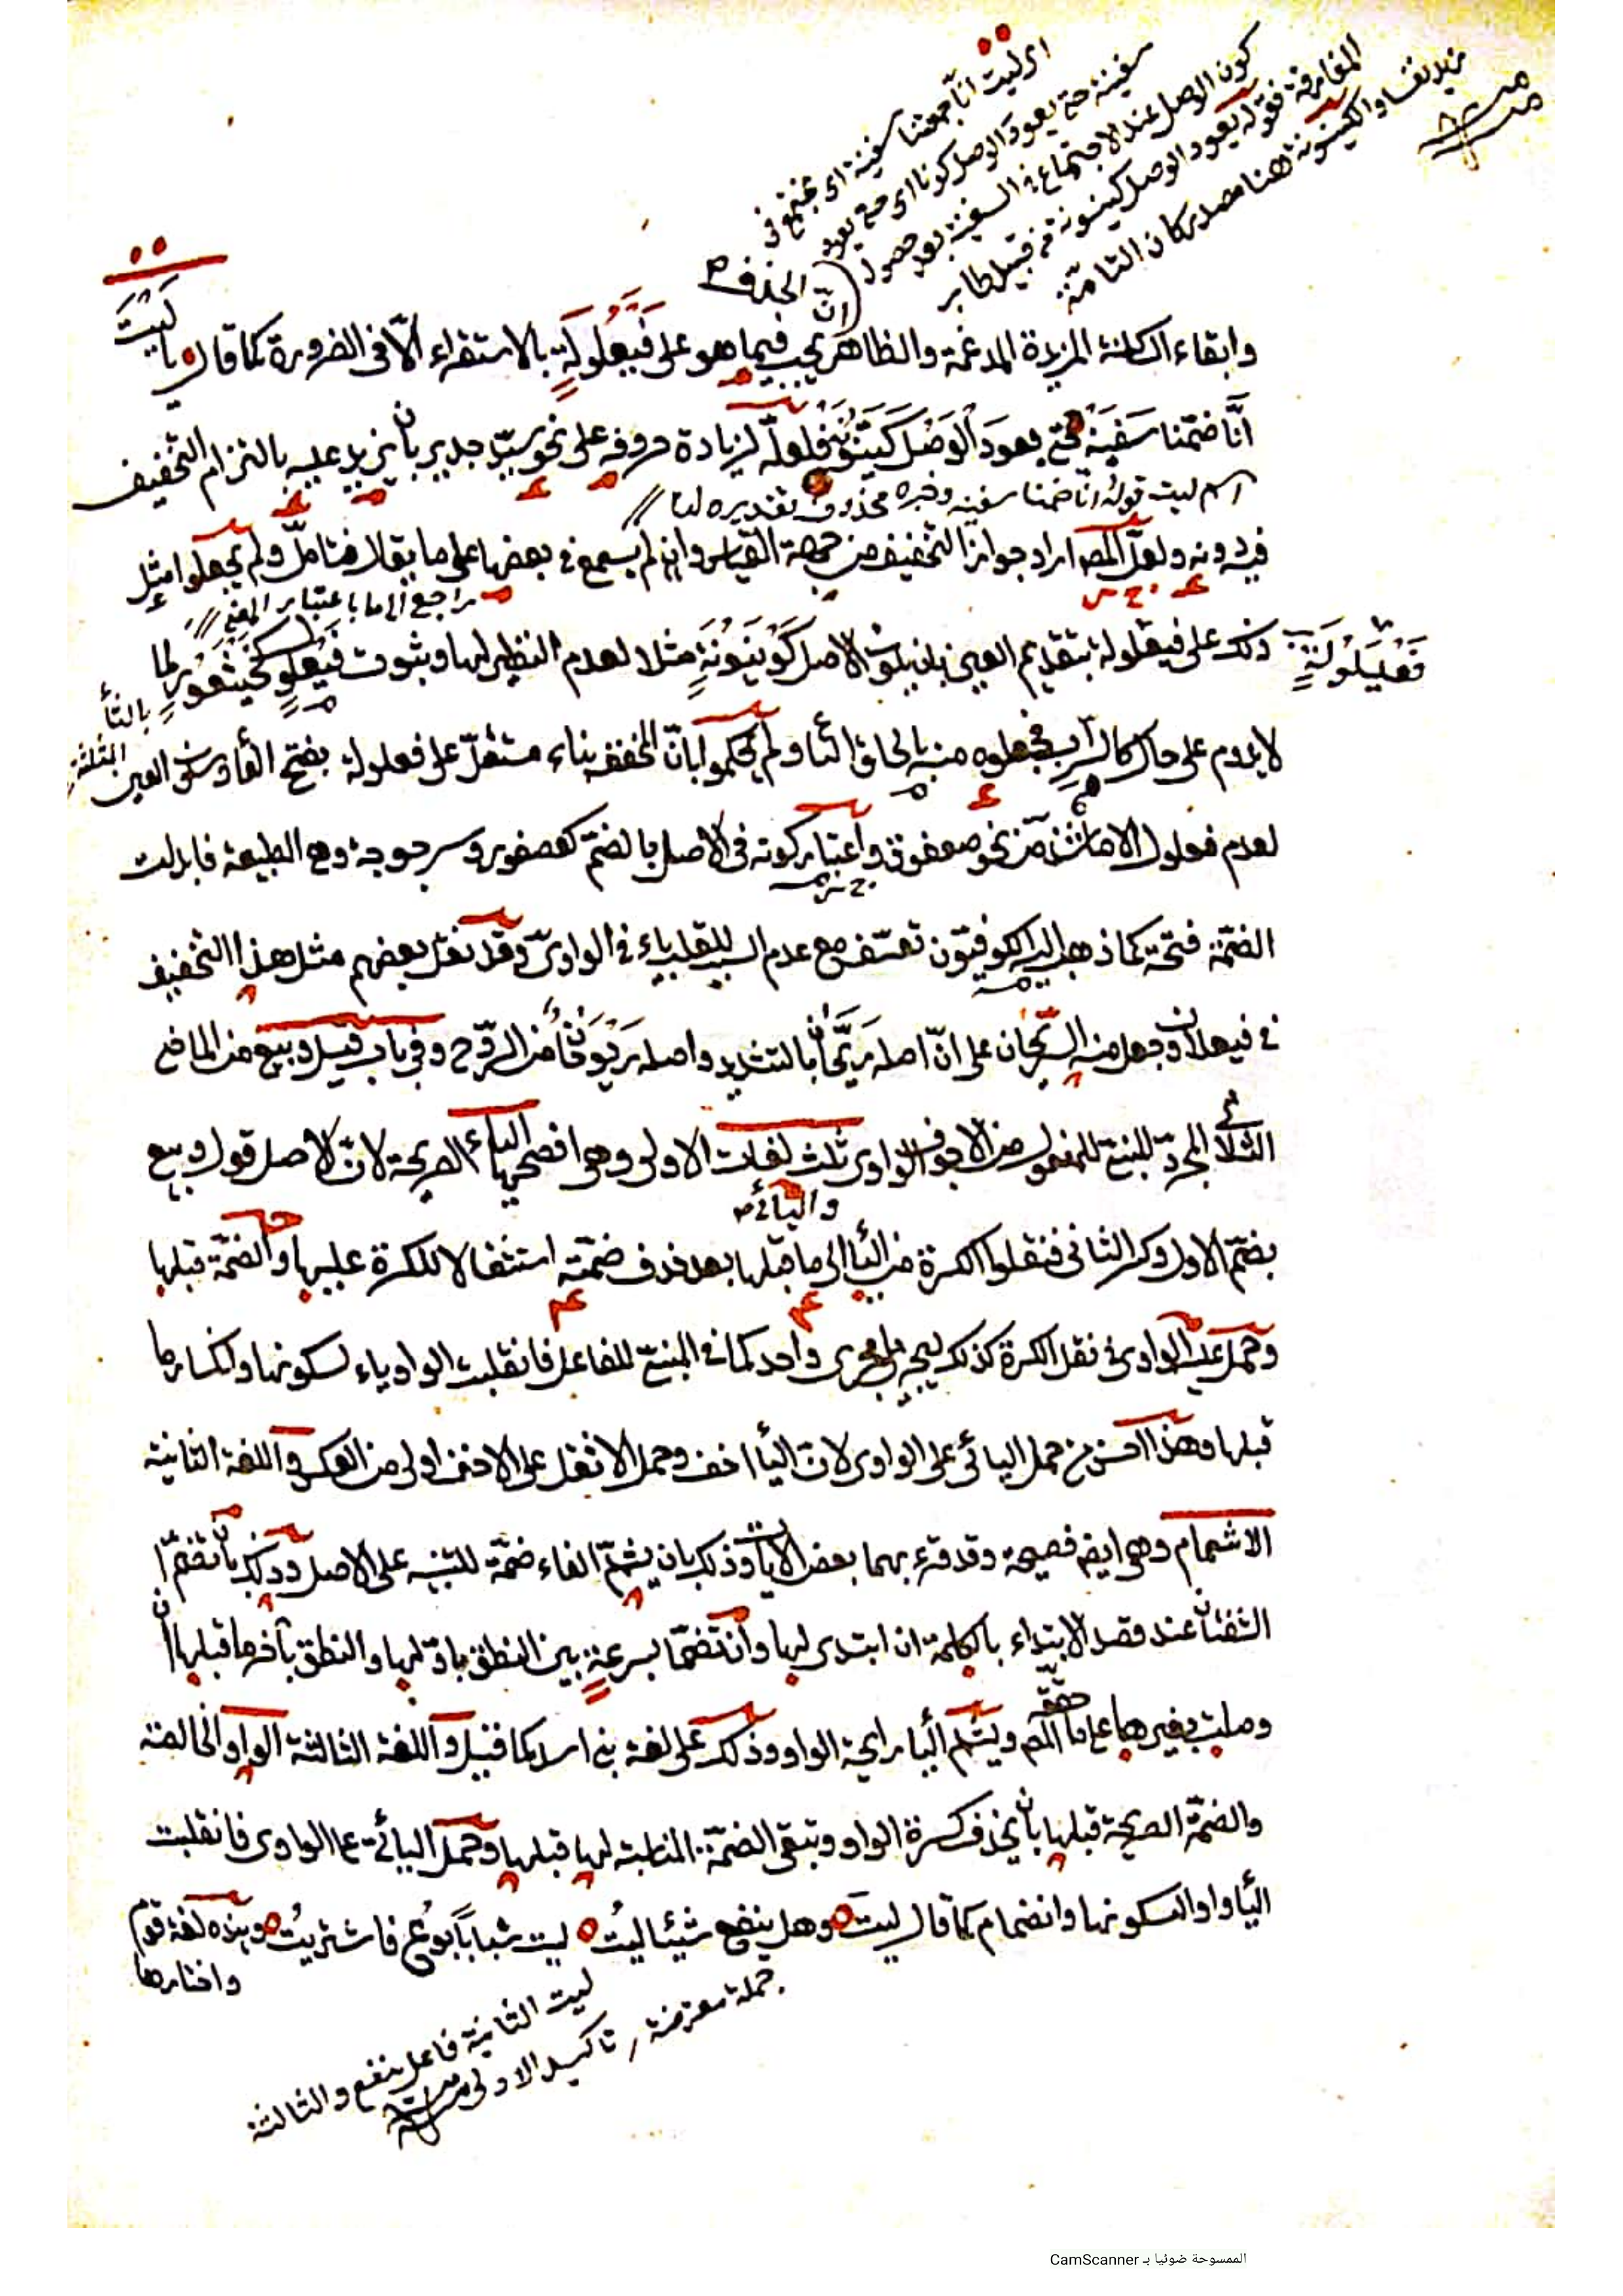 اى ليت انّا جمعتنا سفينة اى نجتمع فى
سفينة حتى يعود الوصل كونا اى حتى يعود
كون الوصل عند الاجتماع فى السفينة بعد حصول
المفارقة فقوله يعود الوصل كينونة من قبيل طاب
زيد نفسا والكينونة هنا مصدر كان التامّة
انّ الحذف
وابقاء الساكنة المزيدة المدغمة والظاهر يجب فيما هو على فَيْعَلُولَةٍ بالاستقراء الّا فى الضرورة كما قال يا ليت
انّا ضمّنا سَفينَة حتى يعودَ الوَصْل كَيَّنُونَه فلعلّه لزيادة حروفه على نحو سيّد جدير بان يزيد عليه بالتزام التخفيف
اسم ليت قوله انّا ضمنا سفينه وخبره محذوف تقديره لنا
فيه دونه ولعلّ المص اراد جواز التخفيف من جهة القياس وان لم يسمع فى بعضها على ما يقال فتامّل ولم يجعلوا مثل
راجع الى ما باعتبار المعنى
ذلك على فيعلولة بتقديم العين بان يكون الاصل كَوْيَنُونَةٍ مثلا لعدم النظير لها وثبوت فَيْعَلولٍ كخَيْثَعُورٍ لما
فَعْيَلُولَةٍ
بالتأ المثلثة
لا يدوم على حال كالسراب فجعلوه منه بالحاق التا ولم يحكموا بانّ المخفف بناء مستقلّ على فعلولة بفتح الفا وسكون العين
لعدم فعلول الا ما شذّ من نحو صعفوق واعتبار كونه فى الاصل بالضمّ كعصفور وسرجوجة وهى الطبيعة فابدلت
الضمّة فتحة كما ذهب اليه الكوفيّون تعسّف مع عدم السبب للقلب ياء فى الواوىّ وقد نقل بعضهم مثل هذا التخفيف
فى فيعلان وجعل منه الرّيحان على انّ اصله رَيَّحان بالتشديد واصله رَيْوَحَان من الرّوح وفى باب قيل وبيع من الماضى
الثلاثى المجرّد المبنىّ للمفعول من الاجوف الواوى ثلث لغات الاولى وهى افصحها الياء الصريحة لانّ الاصل قول وبيع
واليائى
بضمّ الاول وكسر الثانى فنقلوا الكسرة من اليا الى ما قبلها بعد حذف ضمّته استثقالا للكسرة عليها والضمّة قبلها
وحمل عليه الواوى فى نقل الكسرة كذلك ليجريا مجرى واحد كما فى المبنىّ للفاعل فانقلبت الواو ياء لسكونها وانكسار ما
قبلها وهذا احسن من حمل اليائى على الواوى لانّ اليا اخف وحمل الاثقل على الاخف اولى من العكس واللغة الثانية
الاشمام وهى ايضا فصيحة وقد قرء بهما بعض الآيات وذلك بان يشمّ الفاء ضمّة للتنبيه على الاصل وذلك بان تضمّ
الشفتان عند قصد الابتداء بالكلمة ان ابتدى بها وان تضمّا بسرعةٍ بين النطق باوّلها والنطق بآخر ما قبلها ان
وصلت بغيرها على ما حققه المص ويشمّ اليا رايحة الواو وذلك على لغة بنى اسد كما قيل واللغة الثالثة الواو الخالصة
والضمّة الصريحة قبلها بان يحذف كسرة الواو وتبقى الضمّة المناسبة لها قبلها وحمل اليائى على الواوى فانقلبت
اليأ واوا لسكونها وانضمام كما قال ليت وهل ينفع شيئا ليتُ ليت شبابًا بُوع فاشتريتُ وهذه لغة قوم
واختارها
ليت الثانية فاعل ينفع والثالثة
جملة معترضة تاكيد الاولى
الممسوحة ضوئيا بـ CamScanner